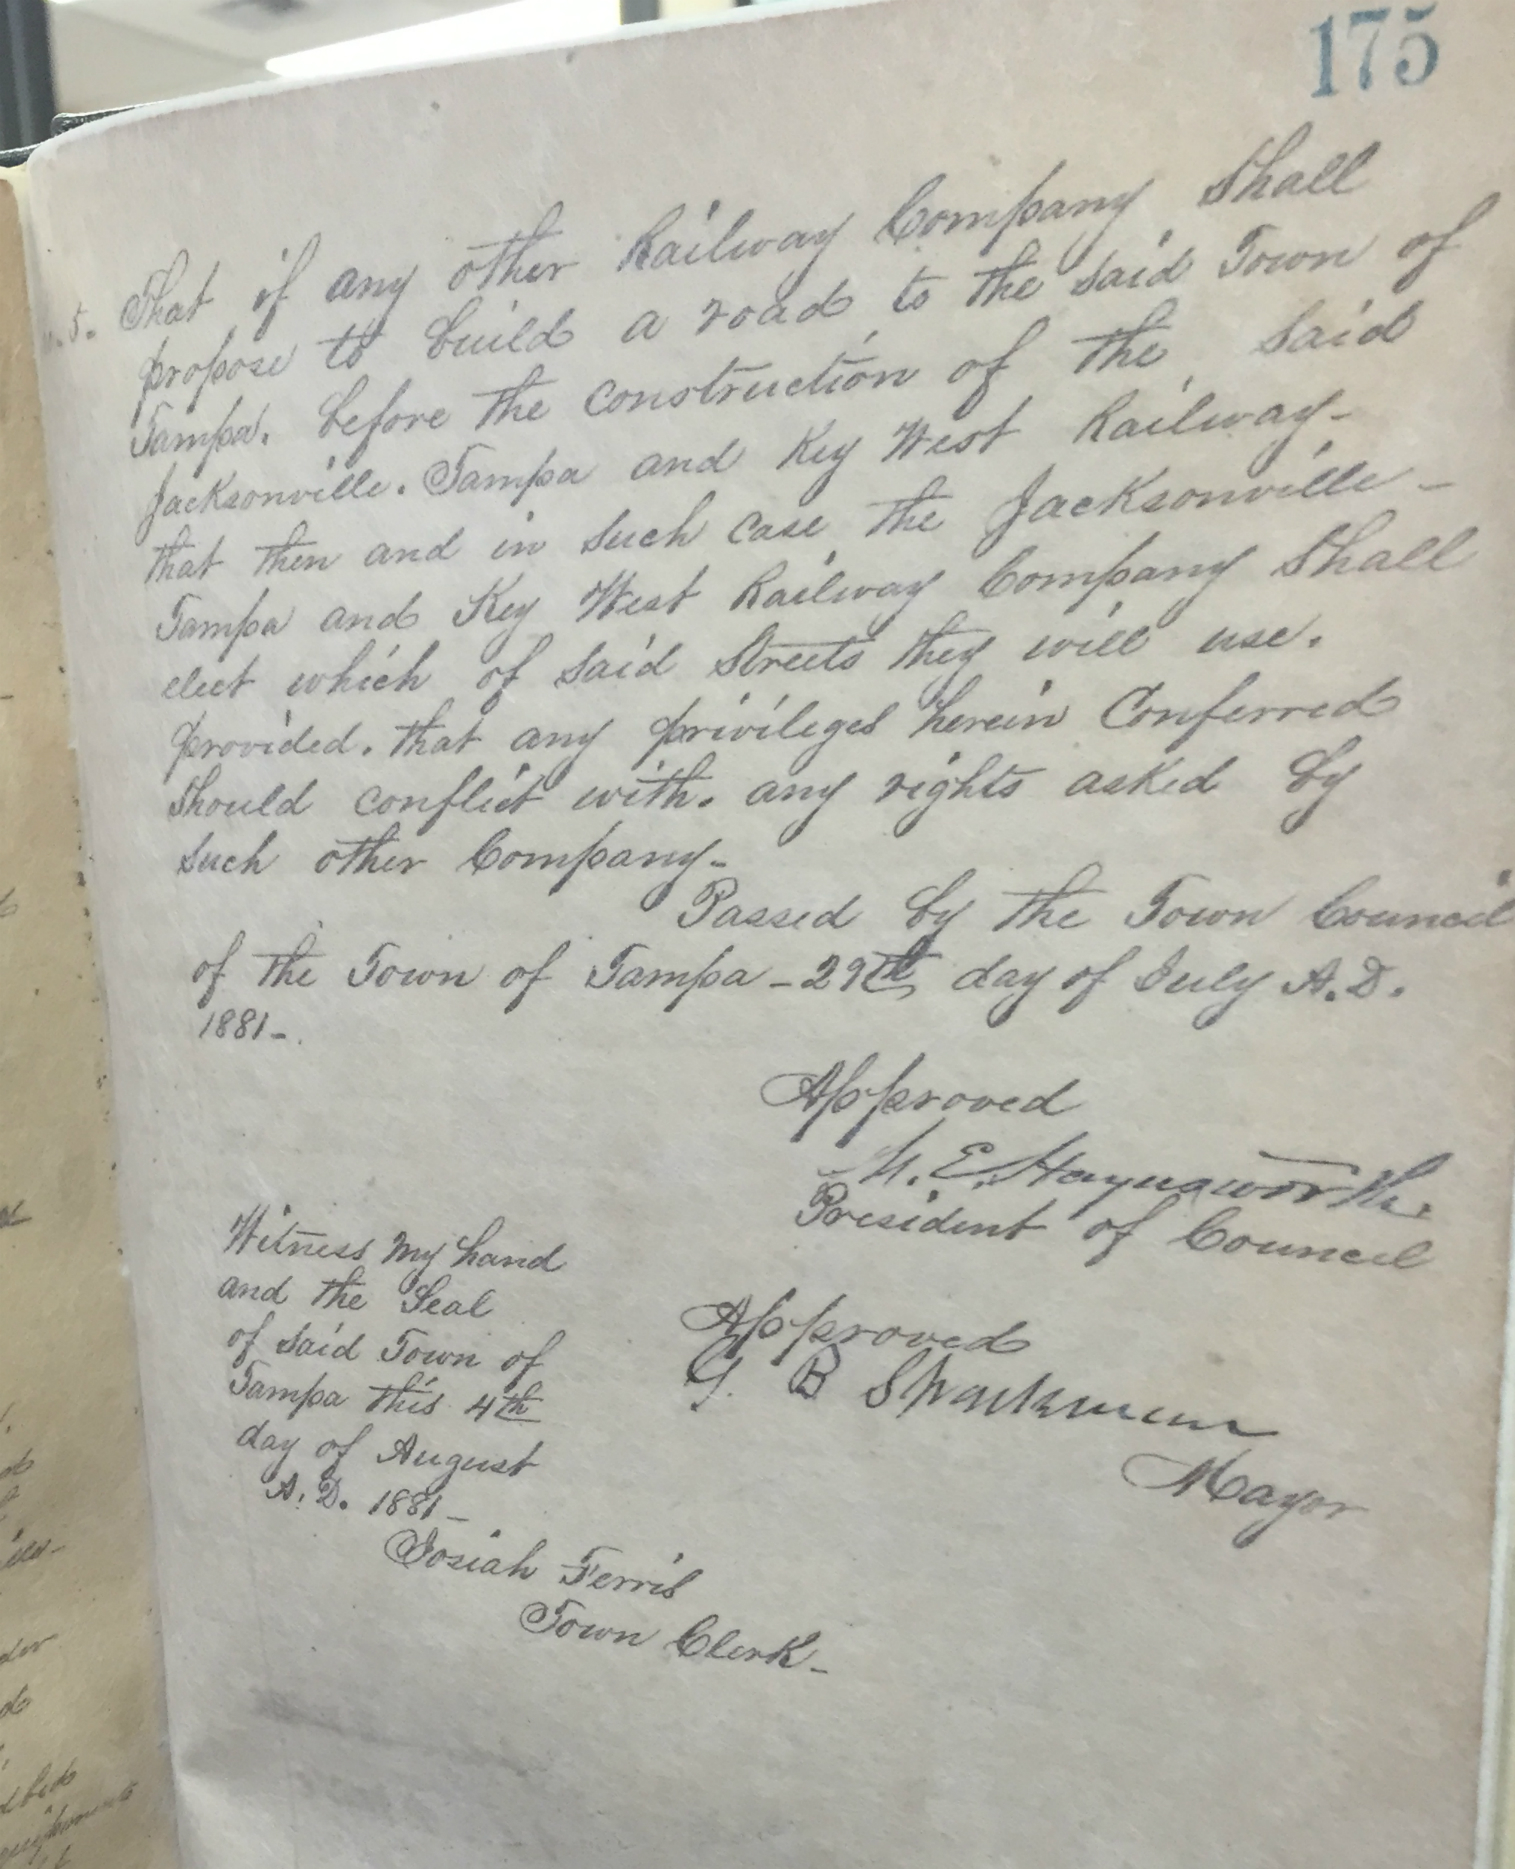 175
5. That if any other Railway Company Shall
propose to build a road to the said Town of
Tampa. before the construction of the said
Jacksonville. Tampa and Key West Railway-
that then and in such case the Jacksonville-
Tampa and Key West Railway Company Shall
elect which of said Streets they will use.
provided. that any privileges herein Conferred
should conflict with. any rights asked by
such other Company-
Passed by the Town Council
of the Town of Tampa - 29th day of July A.D.
1881-.
Approved
M. E. Haynsworth.
President of Council
Witness my hand
and the Seal
of said Town of
Tampa this 4th
day of August
A.D. 1881-
Josiah Ferris
Town Clerk-
Approved
G. B Sparkman
Mayor